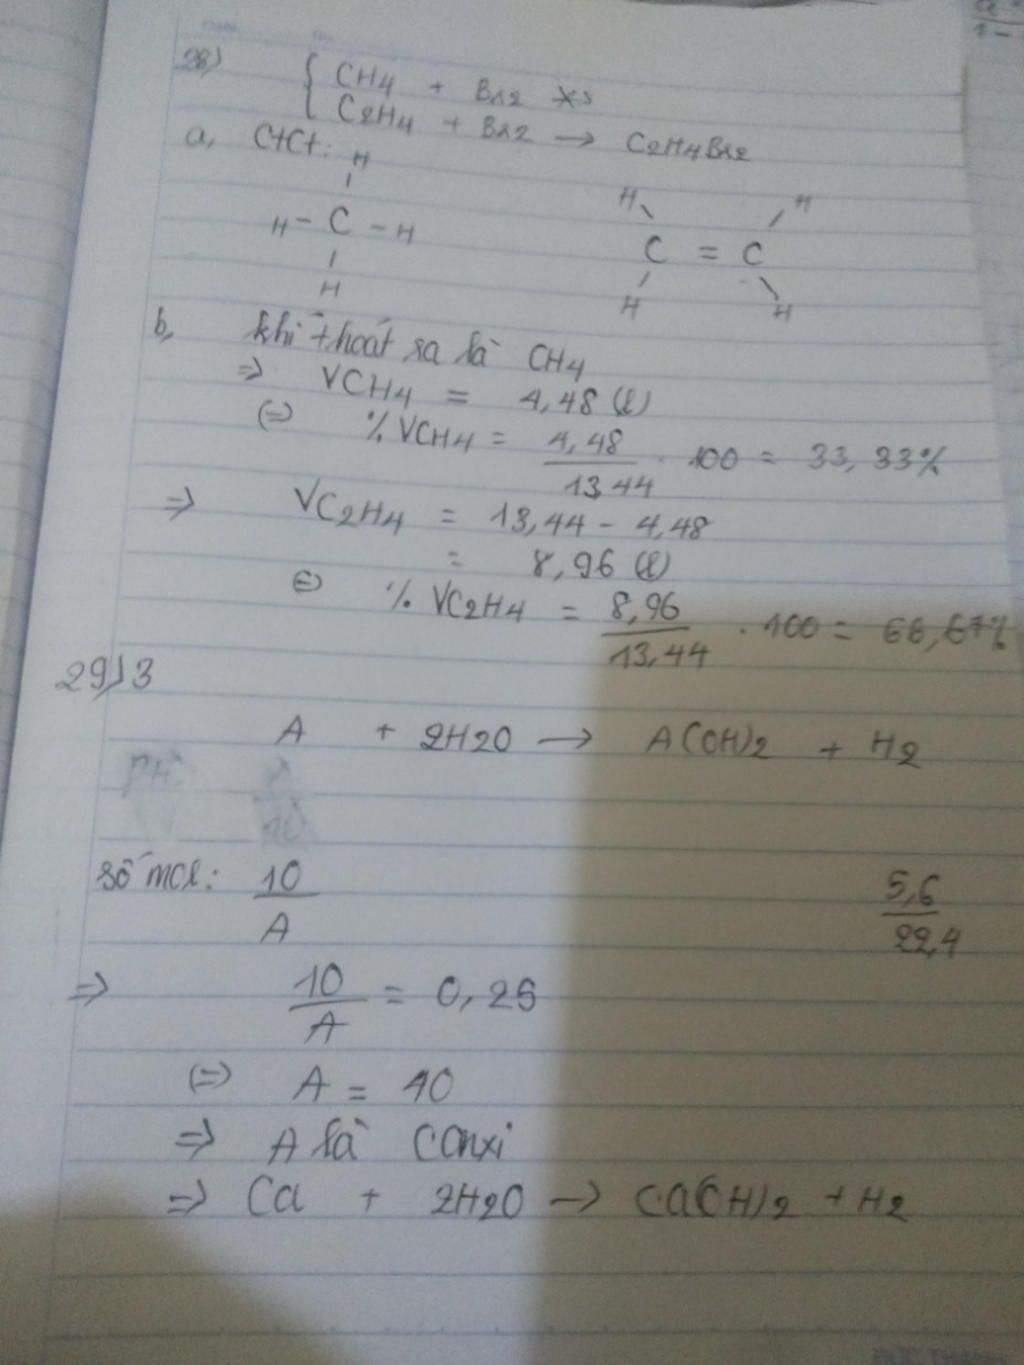 28) { CH4 + Br2 ⇸
{ C2H4 + Br2 → C2H4Br2
a, CTCT:
H H H
H - C - H C = C
H H H
b, khí thoát ra là CH4
⇒ VCH4 = 4,48 (l)
(=) % VCH4 = 4,48 / 13,44 . 100 = 33,33%
⇒ VC2H4 = 13,44 - 4,48
= 8,96 (l)
(=) % VC2H4 = 8,96 / 13,44 . 100 = 66,67%
29) 3
A + 2H2O → A(OH)2 + H2
số mol: 10 / A 5,6 / 22,4
⇒ 10 / A = 0,25
(=) A = 40
⇒ A là Canxi
⇒ Ca + 2H2O → Ca(OH)2 + H2